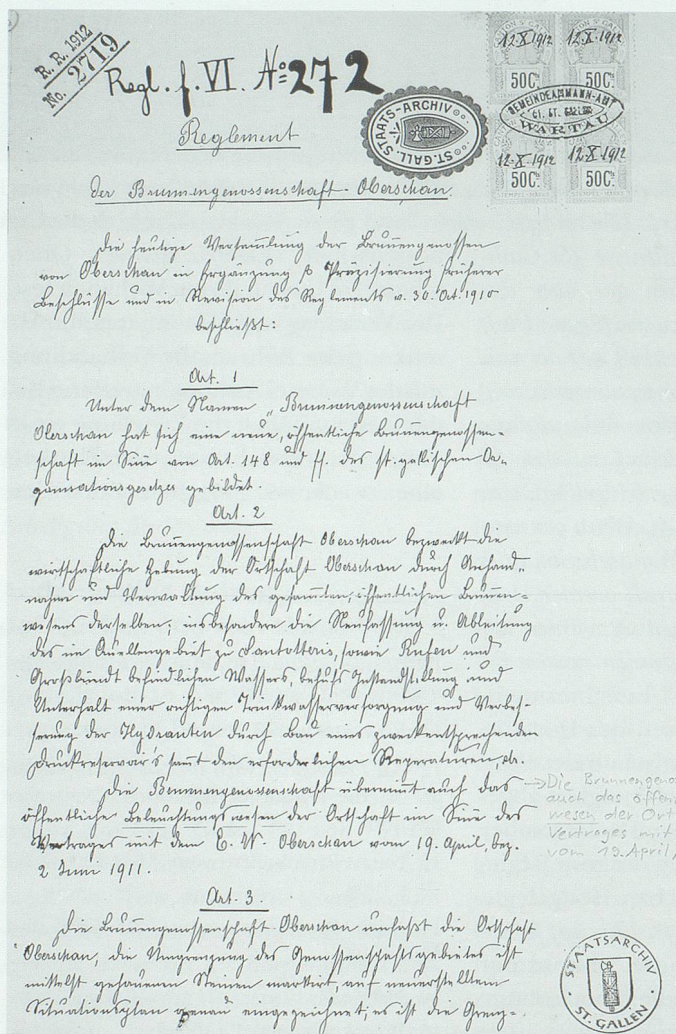 R. R. 1912
No. 2719
Regl. f. VI. No 272
ST. GALL. STAATS-ARCHIV
KANTON ST. GALLEN
12.X.1912 12.X.1912
50C. 50C.
GEMEINDEAMMANN-AMT
Ct. ST. GALLEN
WARTAU
12.X.1912 12.X.1912
50C. 50C.
STEMPEL-MARKE STEMPEL-MARKE
Reglement
der Brunnengenossenschaft Oberschan.
Die heutige Versammlung der Brunnengenossen
von Oberschan in Ergänzung & Präzisierung früherer
Beschlüsse und in Revision des Reglements v. 30. Oct. 1910
beschließt:
Art. 1
Unter dem Namen „Brunnengenossenschaft
Oberschan hat sich eine neue, öffentliche Brunnengenossen-
schaft im Sinne von Art. 148 und ff. des st. gallischen Or-
ganisationsgesetzes gebildet.
Art. 2
Die Brunnengenossenschaft Oberschan bezweckt die
wirtschaftliche Hebung der Ortschaft Oberschan durch Anhand-
nahme und Verwaltung des gesammten öffentlichen Brunnen-
wesens derselben; insbesondere die Neufassung u. Ableitung
des im Quellengebiet zu sowie Rufen und
befindlichen Wassers, behufs Instandstellung und
Unterhalt einer richtigen Trinkwasserversorgung und Verbes-
serung der Hydranten durch Bau eines zweckentsprechenden
Druckreservoir's samt den erforderlichen Reparaturen,
Die Brunnengenossenschaft übernimmt auch das
öffentliche Beleuchtungswesen der Ortschaft im Sinne des
Vertrages mit dem E. W. Oberschan vom 19. April, bez.
2 Juni 1911.
→Die Brunnengeno
auch das öffen
wesen der Ort
Vertrages mit
vom 19. April,
Art. 3.
Die Brunnengenossenschaft Oberschan umfaßt die Ortschaft
Oberschan, die Umgrenzung des Genossenschaftsgebietes ist
mittelst gehauenen Steinen markirt, auf neuerstelltem
Situationsplan genau eingezeichnet; es ist die Grenz-
STAATSARCHIV
ST. GALLEN